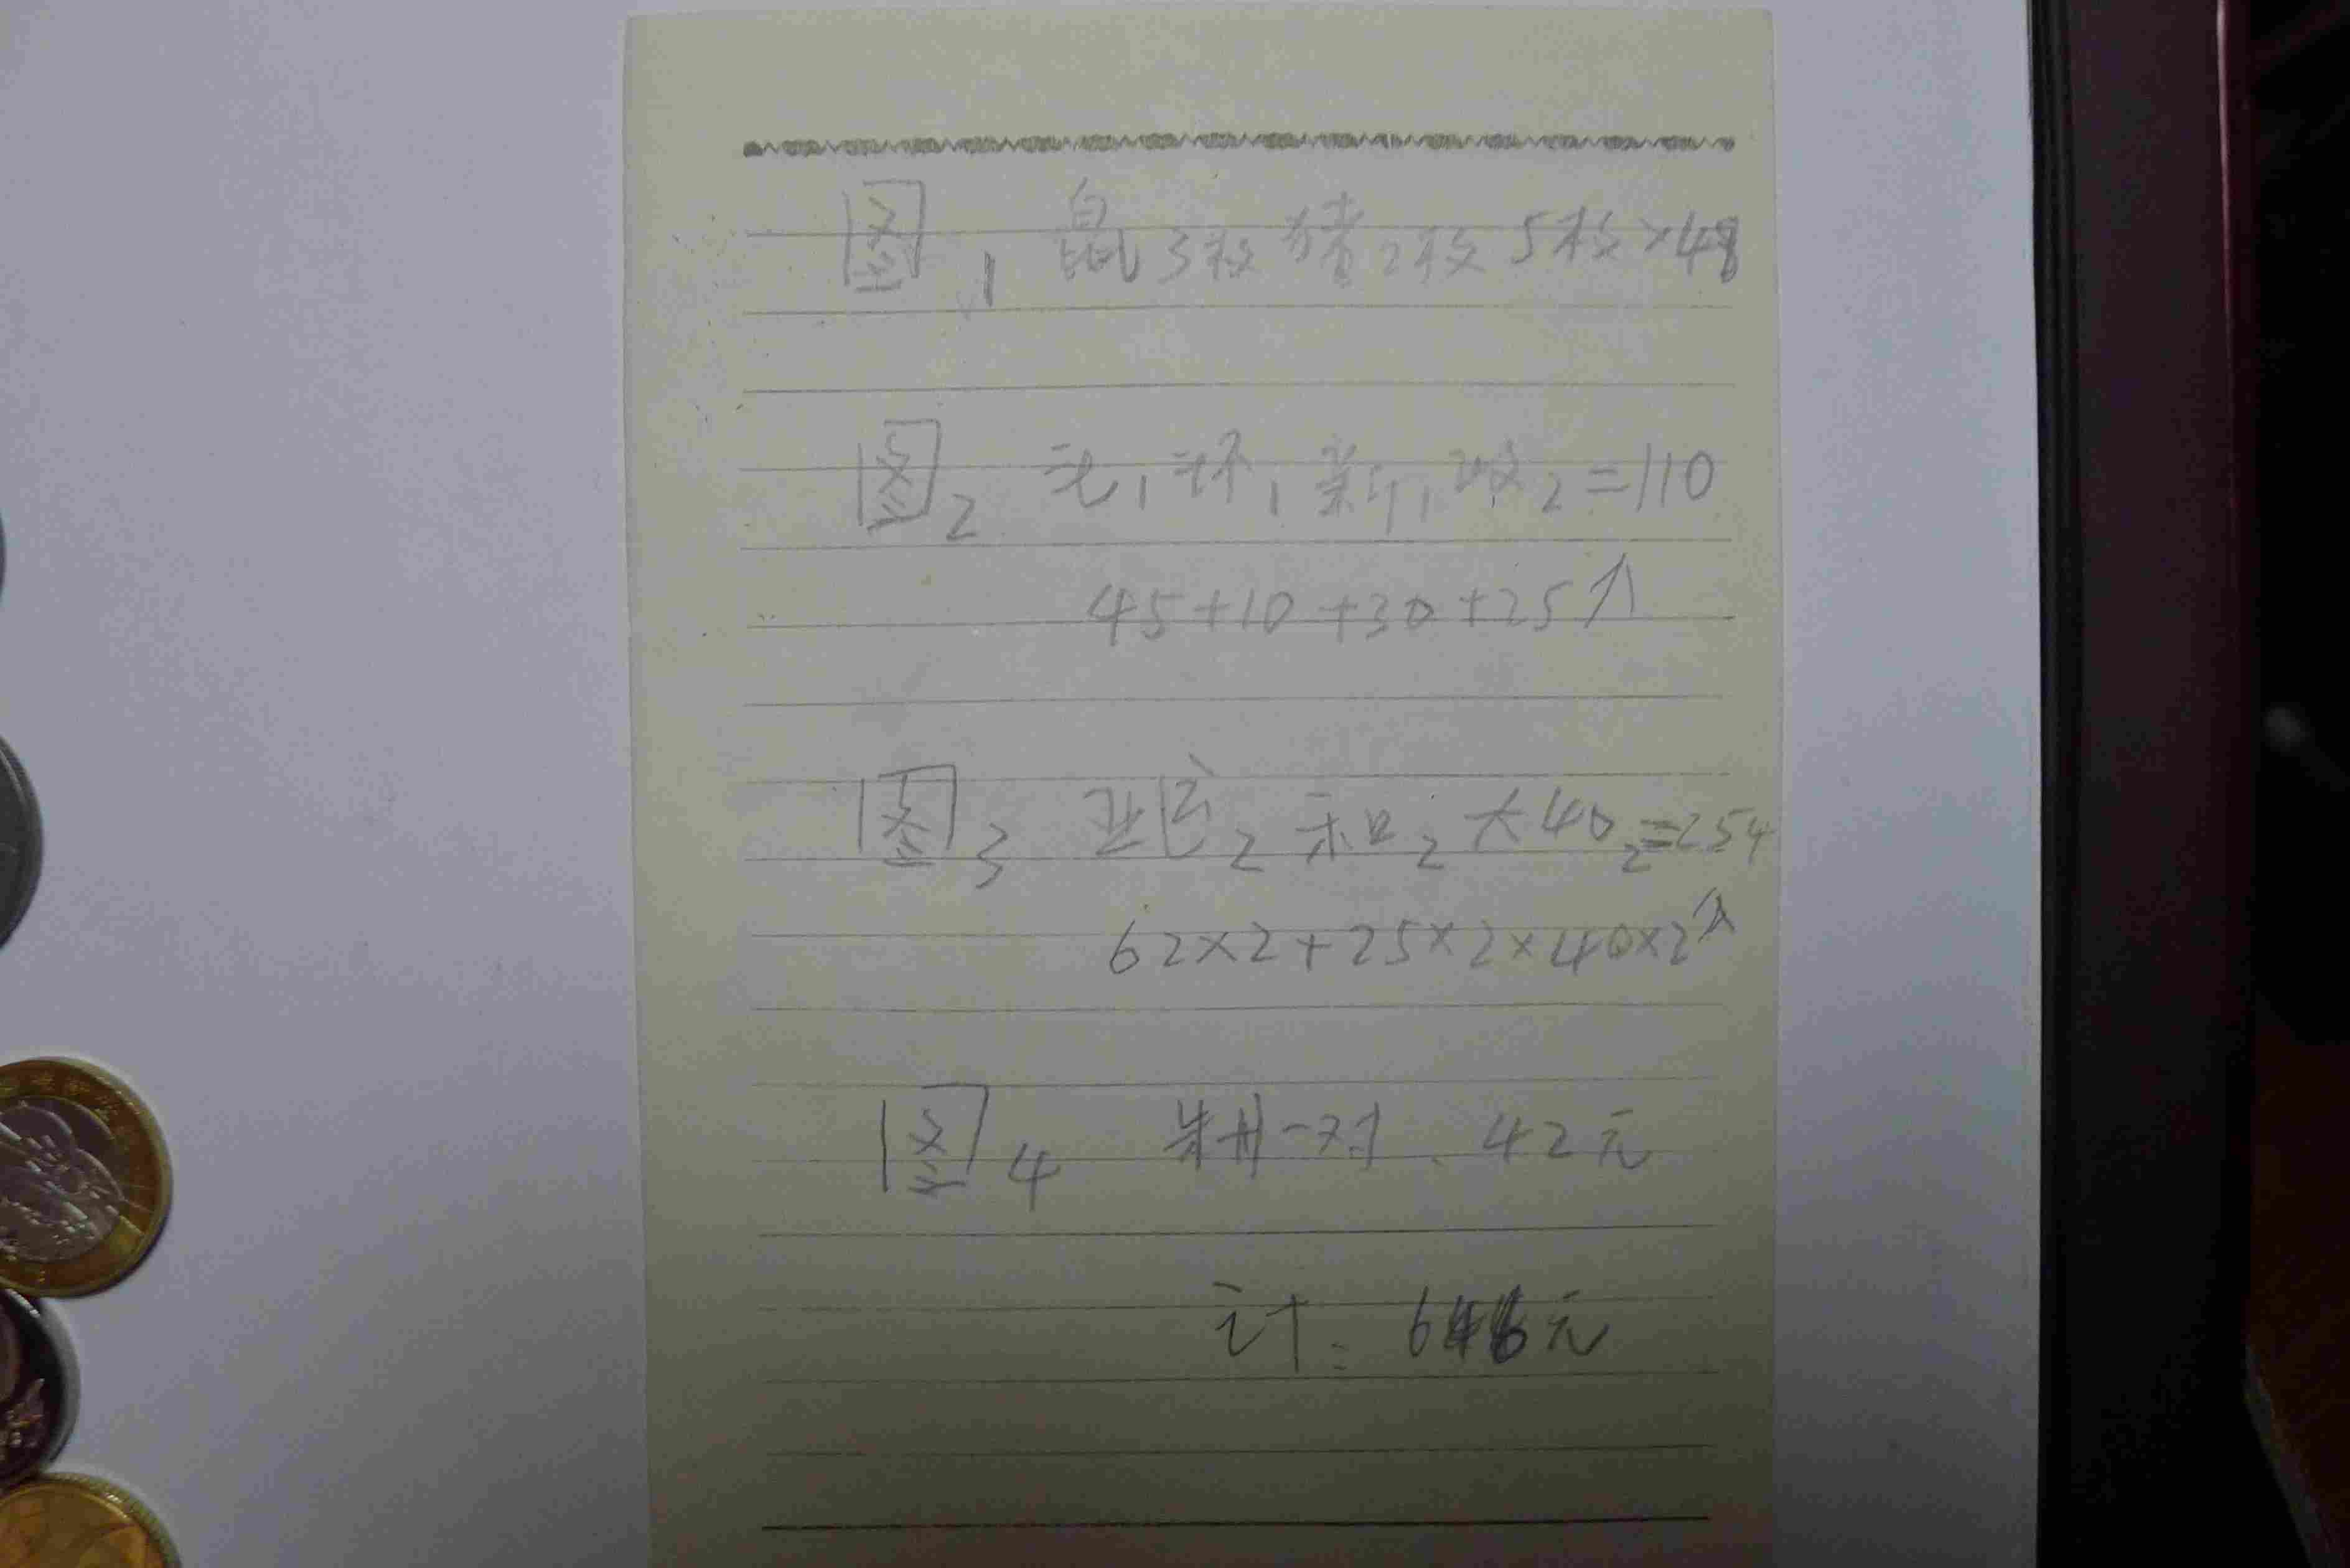 图1 鼠3枚猪2枚 5枚×48
图2 沈1环1新1政2=110
45+10+30+25
图3 亚运2 和2 大40 2=254
62×2+25×2×40×2
图4 制一对、42元
计: 646元